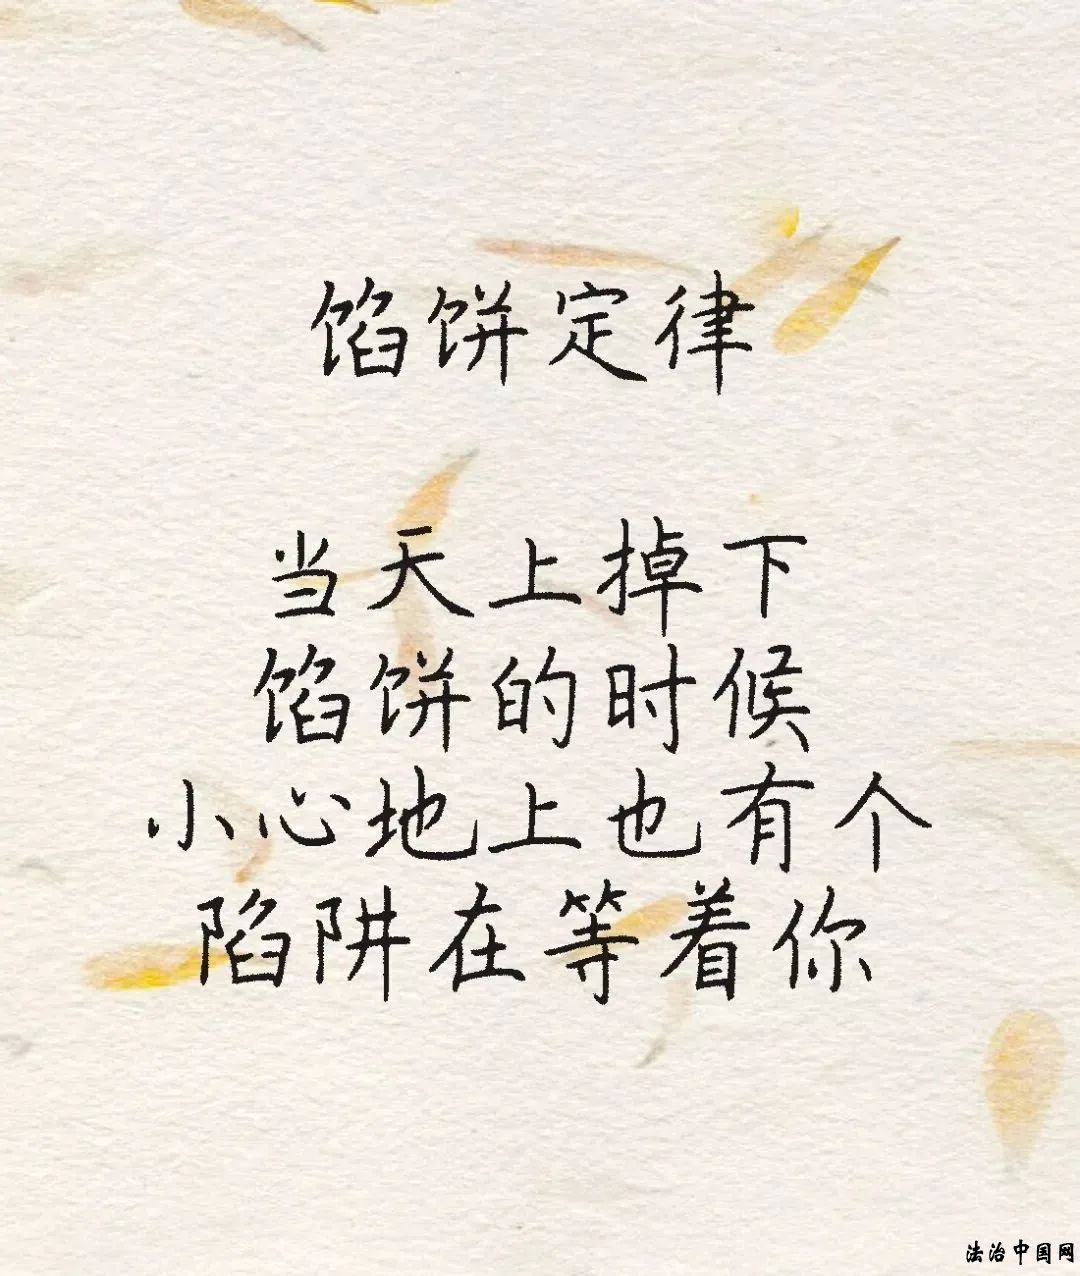 馅饼定律
当天上掉下
馅饼的时候
小心地上也有个
陷阱在等着你
法治中国网